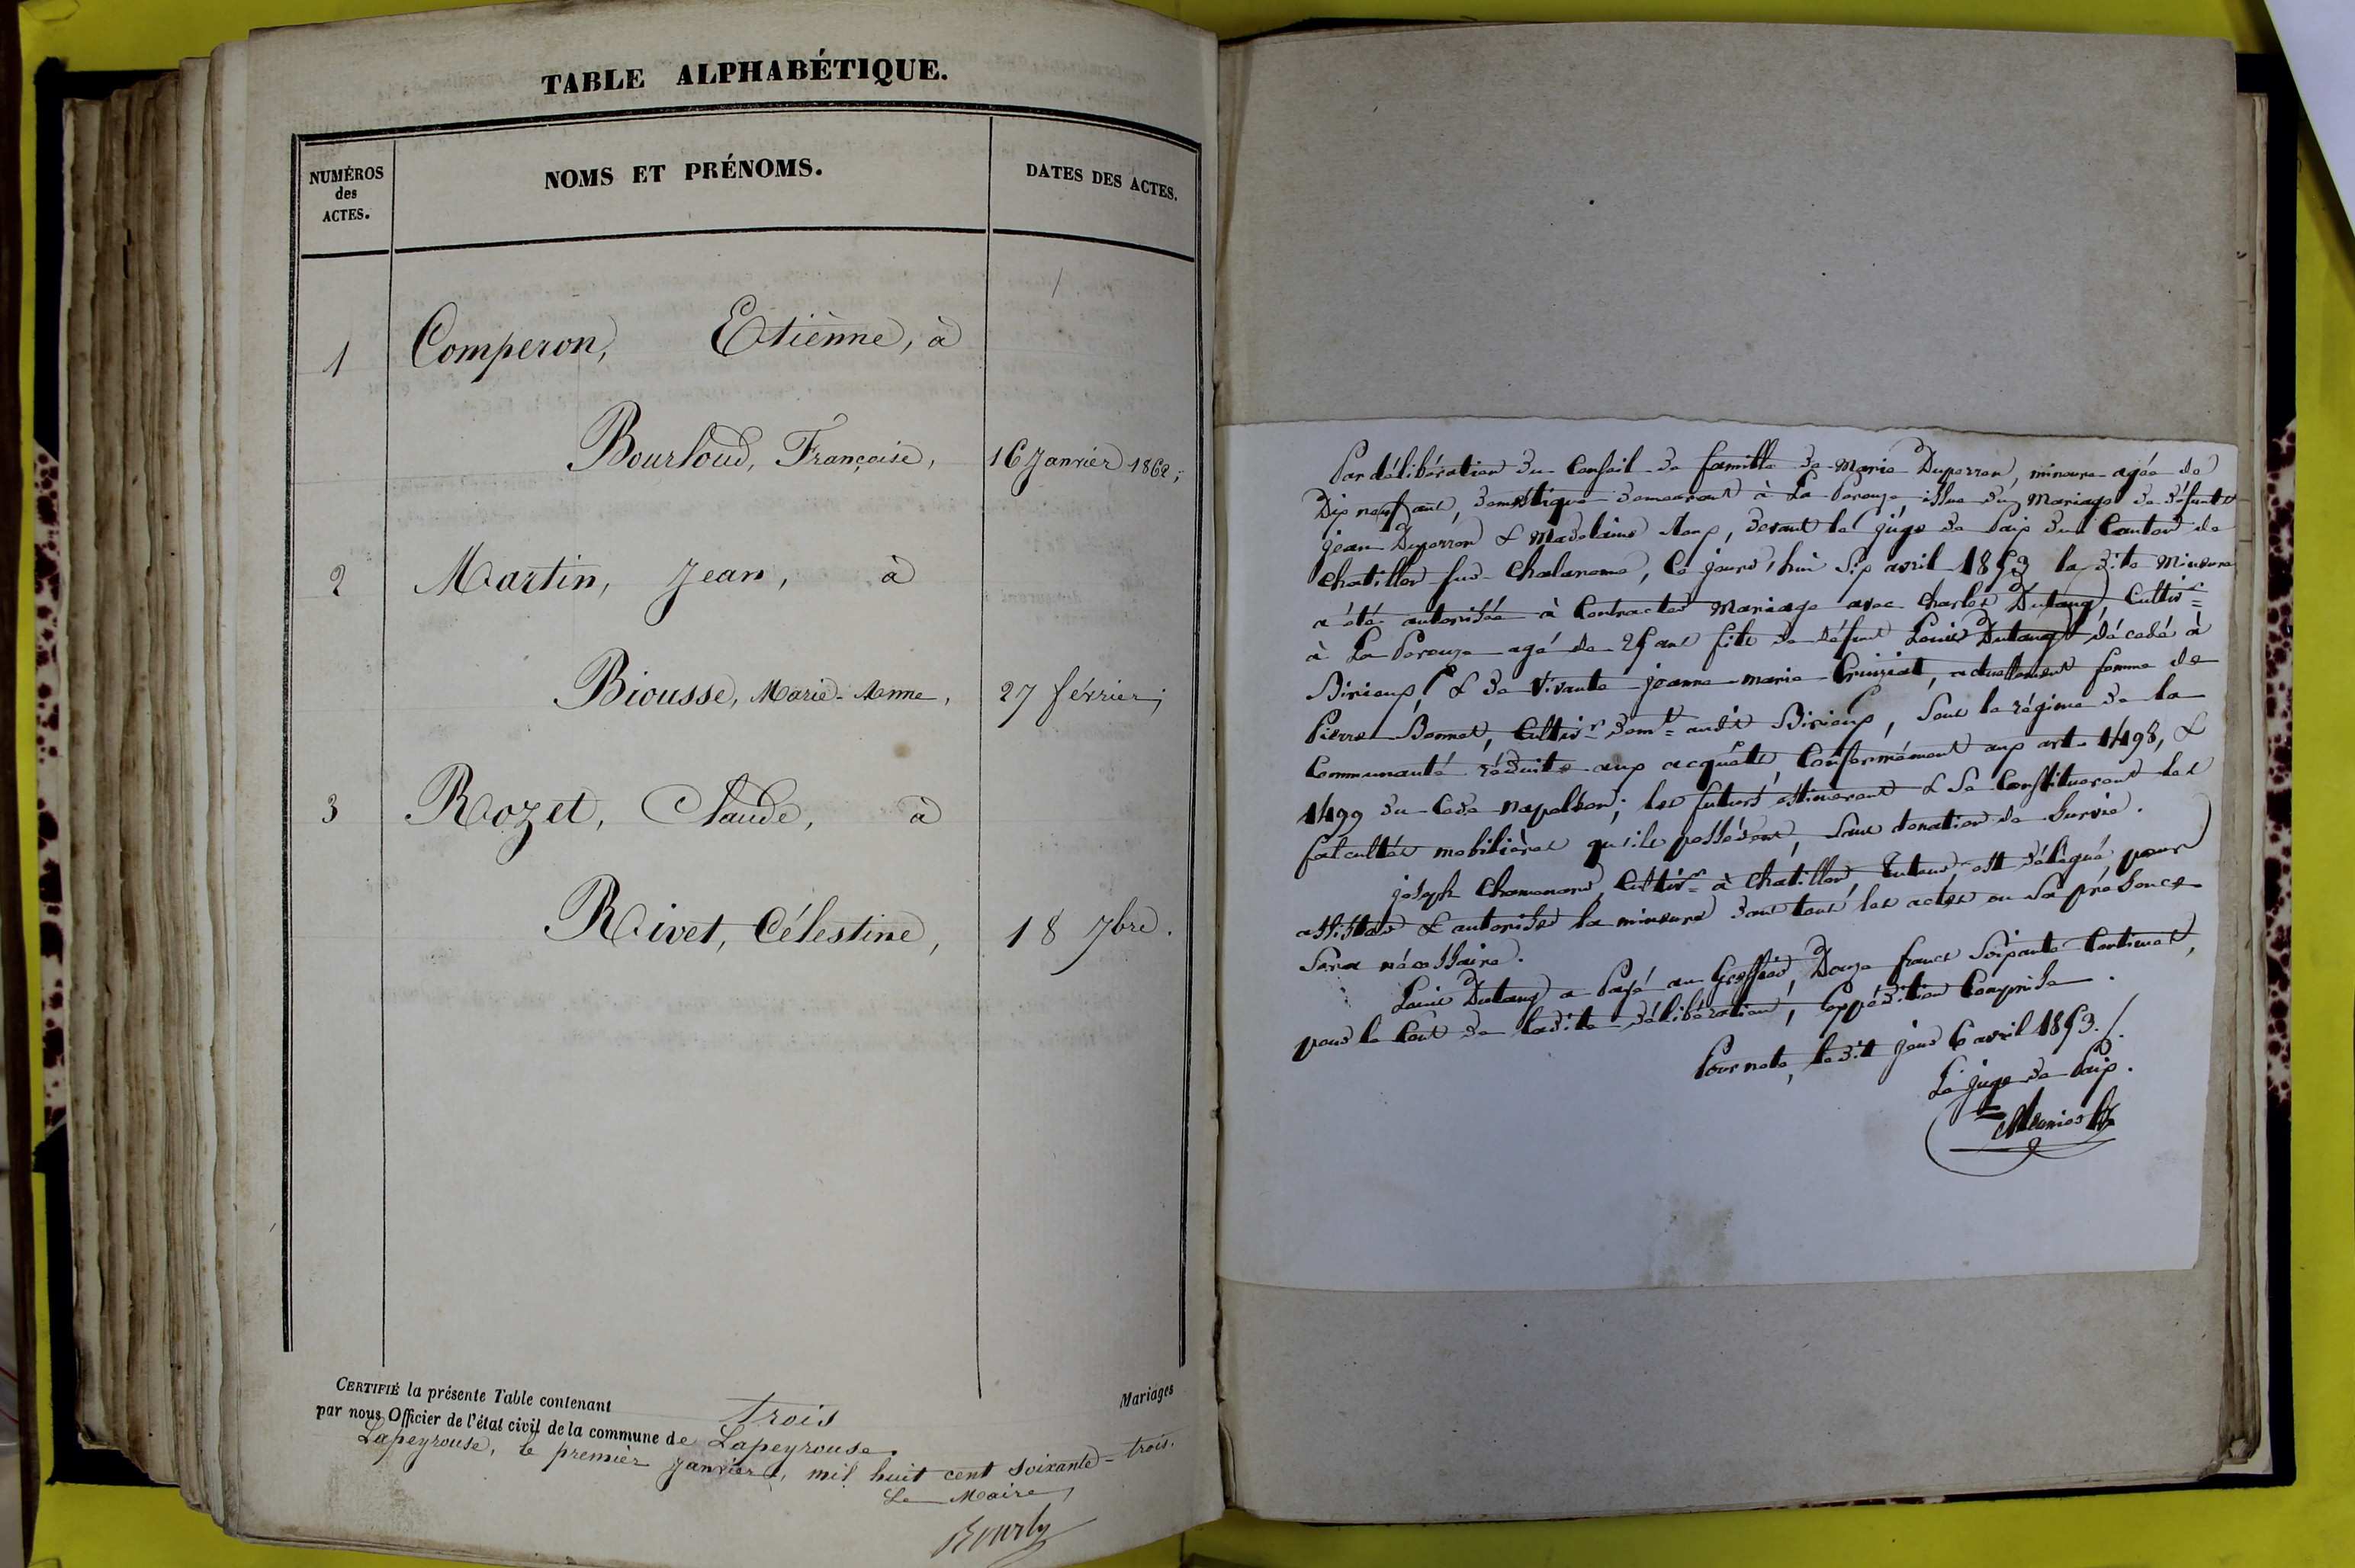 TABLE ALPHABÉTIQUE.
NUMÉROS
des
ACTES.
NOMS ET PRÉNOMS.
DATES DES ACTES.
1 Comperon, Etiènne, à
Bourloud, Françoise, 16 Janvier 1862;
2 Martin, Jean, à
Biousse, Marie-Anne, 27 février;
3 Rozet, Claude, à
Rivet, Célestine, 18 7bre.
CERTIFIÉ la présente Table contenant trois Mariages
par nous Officier de l'état civil de la commune de Lapeyrouse.
Lapeyrouse, le premièr janvier, mil huit cent soixante-trois.
Le Maire,
Bourly
Par délibération du Conseil de famille de Marie Duperron, mineure agée de
Dix neuf ans, domestique demeurant à La Perouze, issue du Mariage de défunts
jean Duperron & Madelaine, devant le juge de Paix du Canton de
Chatillon sur Chalaronne, Ce jourd'hui Six avril 1853 la dite Mineure
a été autorisée à Contracter Mariage avec Charles Dutang, Cultivr
à La Perouze agé de 25 ans fils de défunt Louis Dutang décédé à
Birieux, & de Vivante jeanne-marie Cruiziat, actuellement femme de
Pierre Bonnet, Cultivr demt audit Birieux, Sous le régime de la
Communauté réduite aux acquêts, Conformément aux art. 1498, &
1499 du Code napoléon; les futurs estimeront & Se Constitueront les
facultés mobilières qu'ils possèdent, Sans donation de Survie.
joseph Chamonard, Cultivr à Chatillon, tuteur, est délégué pour
assister & autoriser la mineure dans tous les actes ou Sa présence
Sera nécessaire.
Louis Dutang a Payé au Greffier, Douze francs Soixante Centimes,
pour le Cout de ladite délibération, Expédition Comprise.
Pour note, ledit jour 6 avril 1853./.
Le juge de Paix.